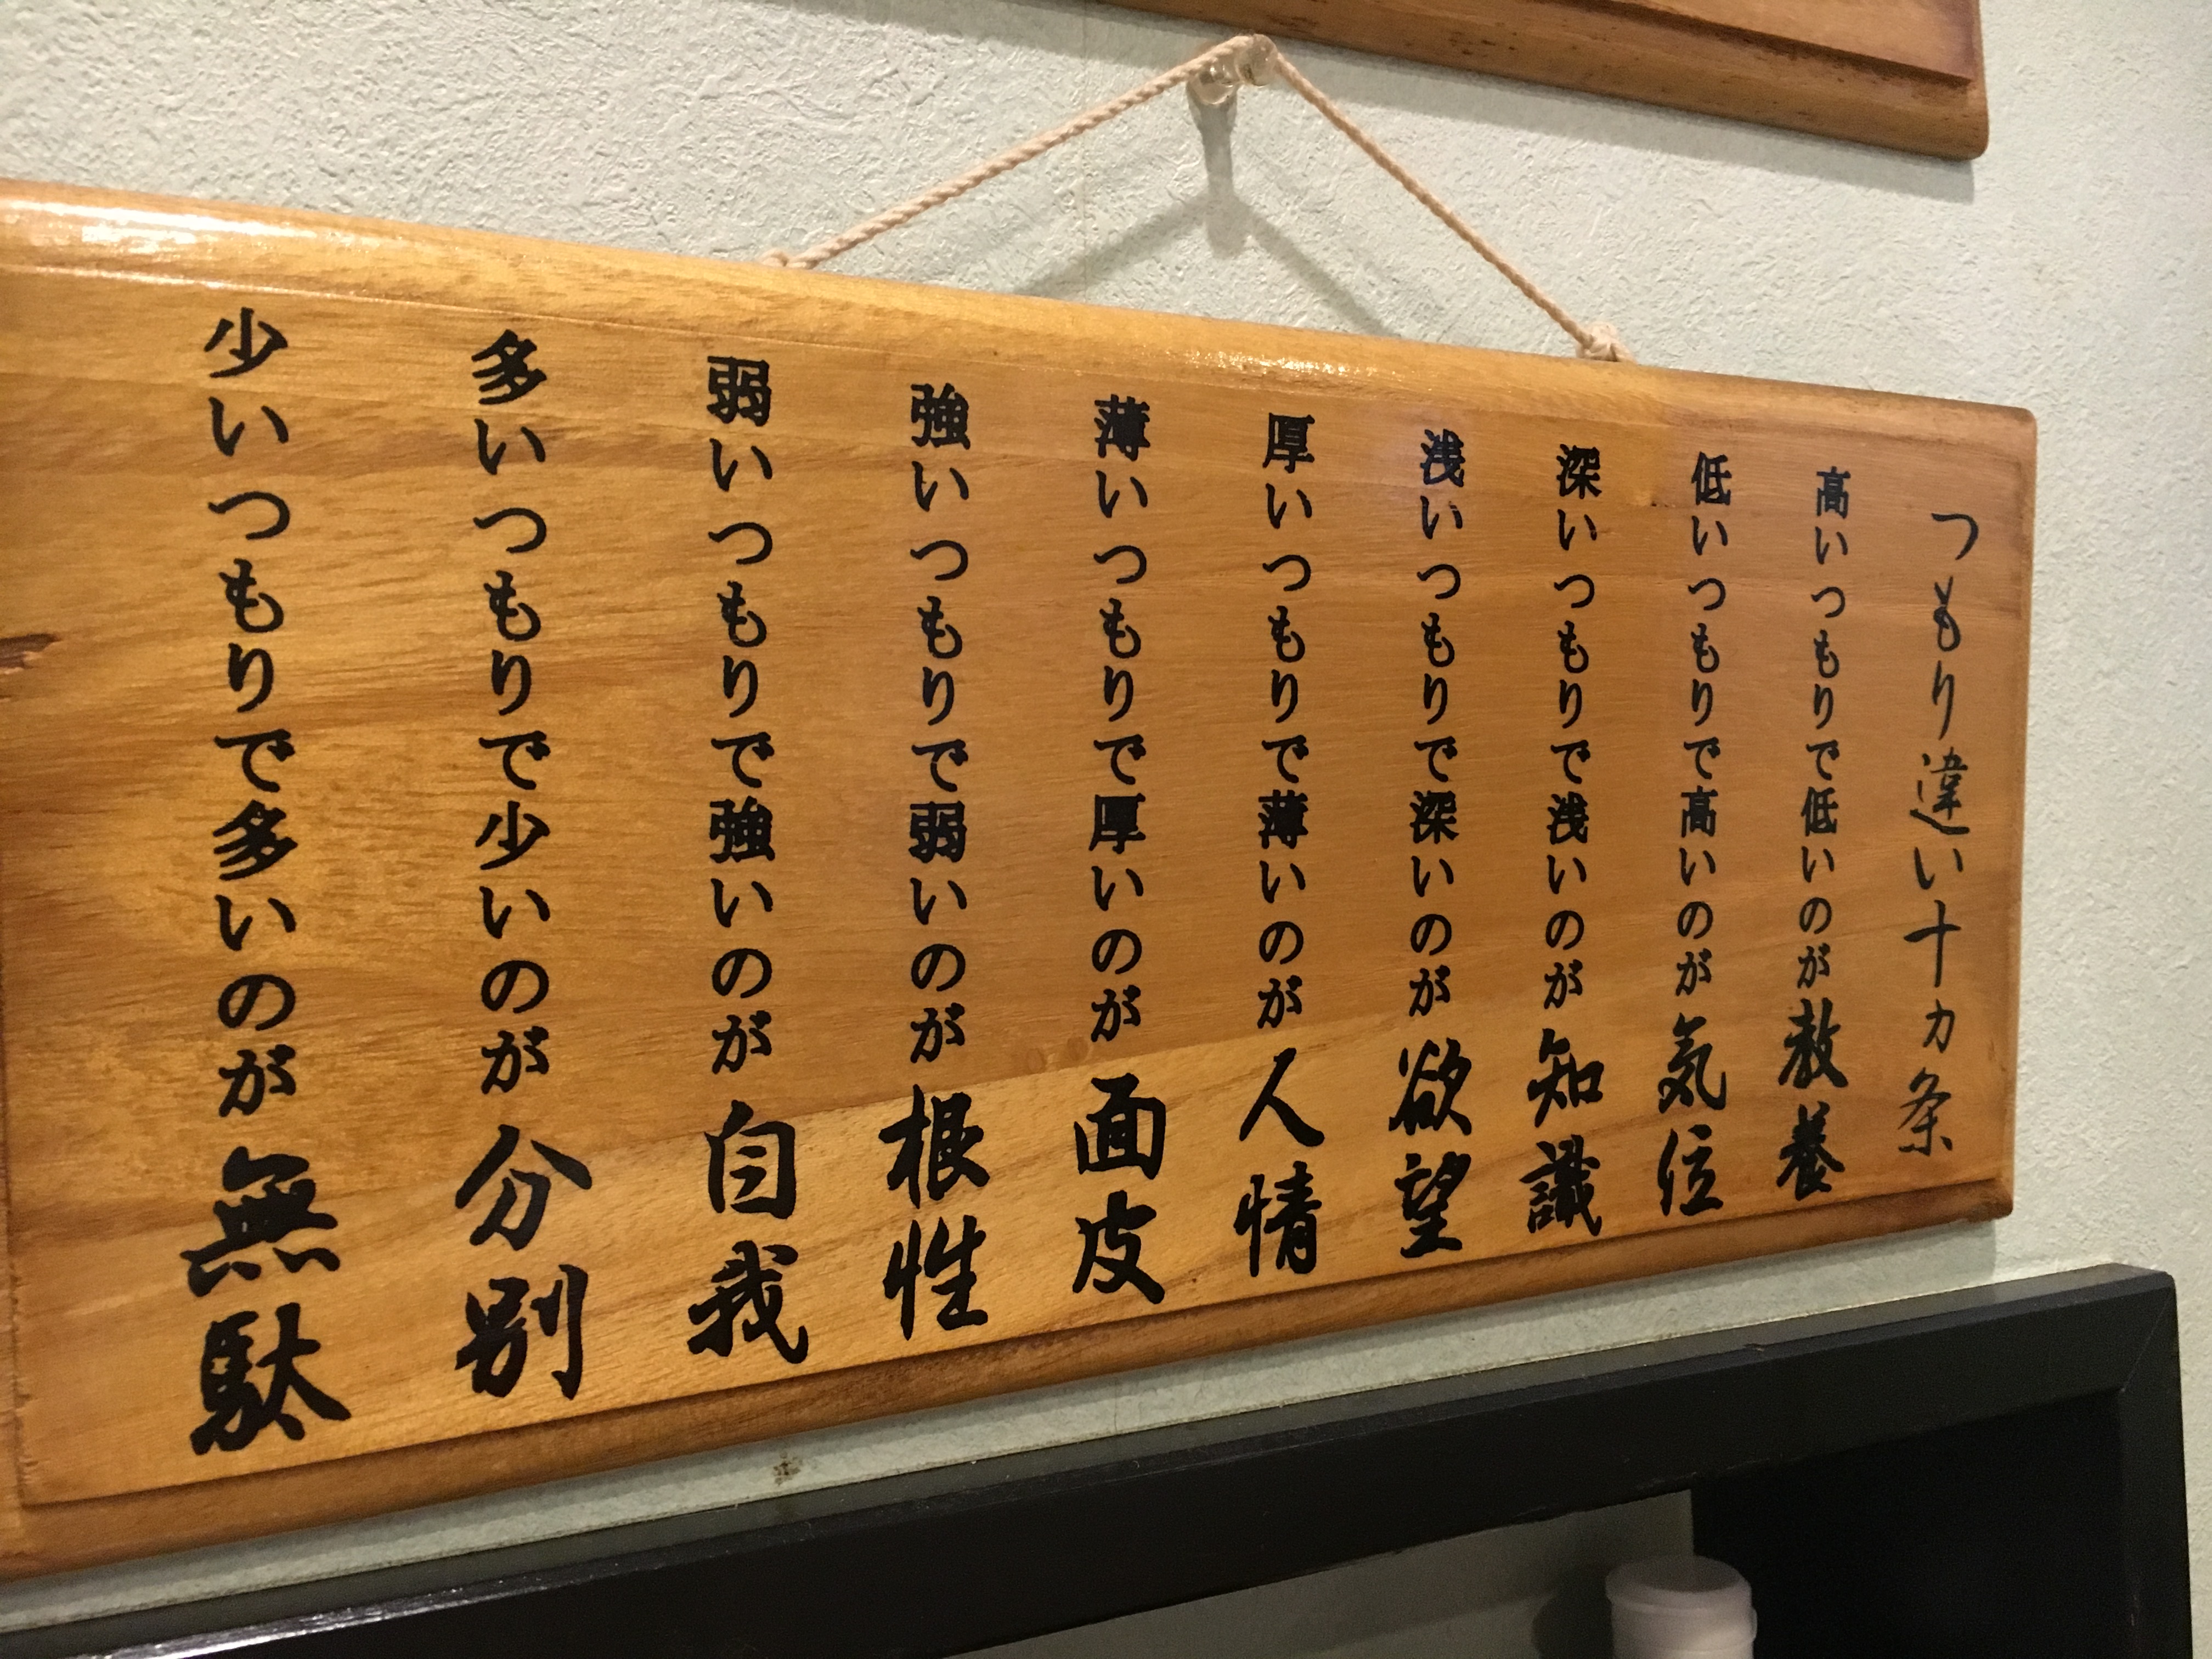 つもり違い十カ条
高いつもりで低いのが教養
低いつもりで高いのが気位
深いつもりで浅いのが知識
浅いつもりで深いのが欲望
厚いつもりで薄いのが人情
薄いつもりで厚いのが面皮
強いつもりで弱いのが根性
弱いつもりで強いのが自我
多いつもりで少いのが分別
少いつもりで多いのが無駄